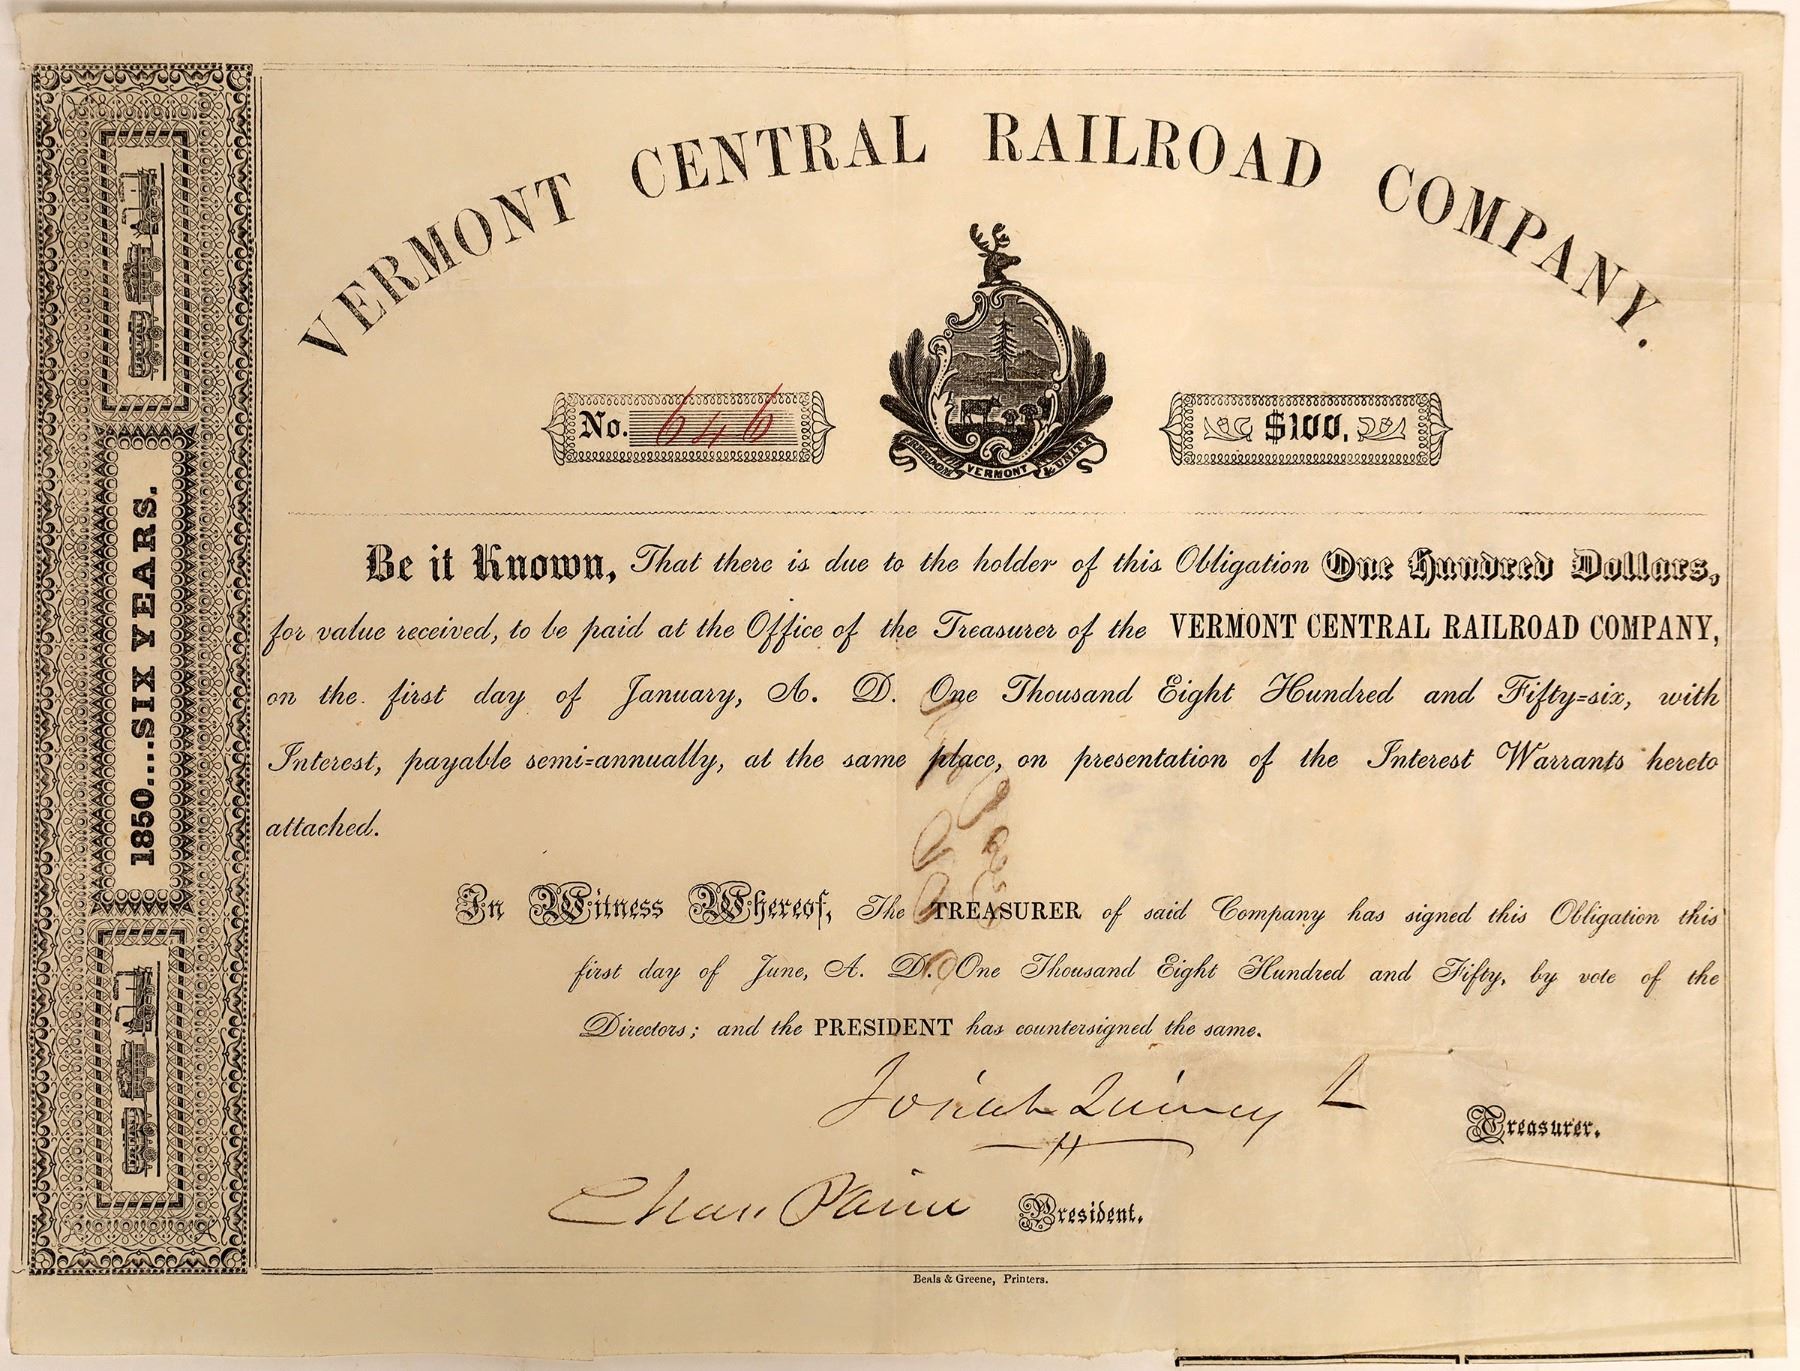 VERMONT CENTRAL RAILROAD COMPANY.
No. 646
$100,
FREEDOM VERMONT & UNITY
1850....SIX YEARS.
Be it Known, That there is due to the holder of this Obligation One Hundred Dollars,
for value received, to be paid at the Office of the Treasurer of the VERMONT CENTRAL RAILROAD COMPANY,
on the first day of January, A. D. One Thousand Eight Hundred and Fifty=six, with
Interest, payable semi=annually, at the same place, on presentation of the Interest Warrants hereto
attached.
In Witness Whereof, The TREASURER of said Company has signed this Obligation this
first day of June, A. D. One Thousand Eight Hundred and Fifty, by vote of the
Directors; and the PRESIDENT has countersigned the same.
Josiah Quincy Jr
Treasurer.
Chas Paine President.
Beals & Greene, Printers.